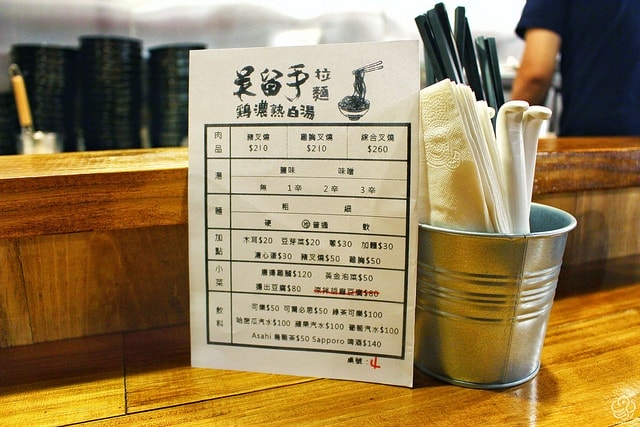 吴留手 拉麵
鶏濃熱白湯
肉品
豬叉燒 雞胸叉燒 綜合叉燒
$210 $210 $260
湯
鹽味 味噌
無 1辛 2辛 3辛
麵
粗 細
硬 普通 軟
加點
木耳$20 豆芽菜$20 蔥$30 加麵$30
溏心蛋$30 豬叉燒$50 雞胸$50
小菜
唐揚雞腿$120 黃金泡菜$50
揚出豆腐$80 涼拌胡麻豆腐$80
飲料
可樂$50 可爾必思$50 綠茶可樂$100
哈密瓜汽水$100 蘋果汽水$100 葡萄汽水$100
Asahi 烏龍茶$50 Sapporo 啤酒$140
桌號：4